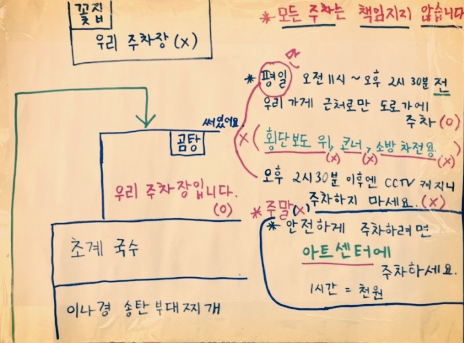 꽃집
우리 주차장 (X)
써있어요
곰탕
우리 주차장입니다.
(O)
초계 국수
이나경 송탄부대찌개
* 모든 주차는 책임지지 않습니다
* 평일 오전 11시 ~ 오후 2시 30분 전
우리 가게 근처로만 도로가에
주차 (O)
X (횡단보도 위, 코너, 소방차전용)
(X) (X) (X)
오후 2시 30분 이후엔 CCTV 켜지니
주차하지 마세요. (X)
* 주말(X)
* 안전하게 주차하려면
아트센터에
주차하세요.
1시간 = 천원